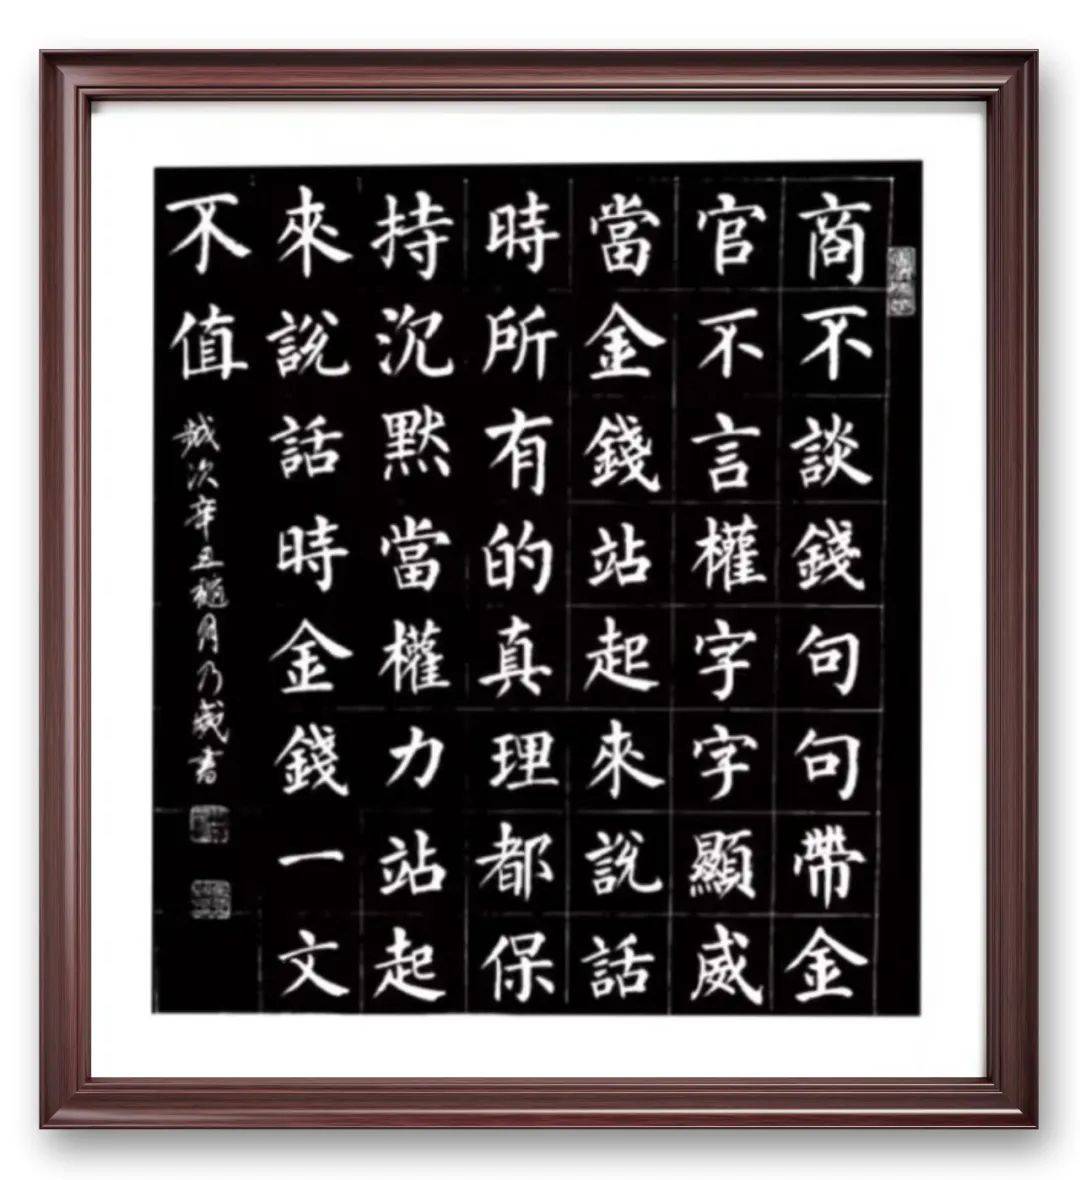 商不談錢句句帶金
官不言權字字顯威
當金錢站起來說話
時所有的真理都保
持沉默當權力站起
來說話時金錢一文
不值
歲次辛丑 月乃 書